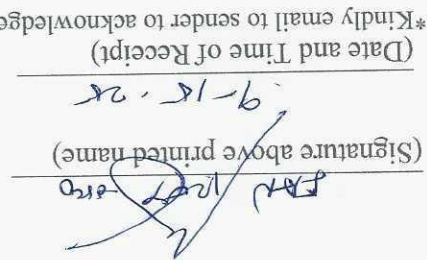 (Signature above printed name)
9-15-25
(Date and Time of Receipt)
*Kindly email to sender to acknowledge